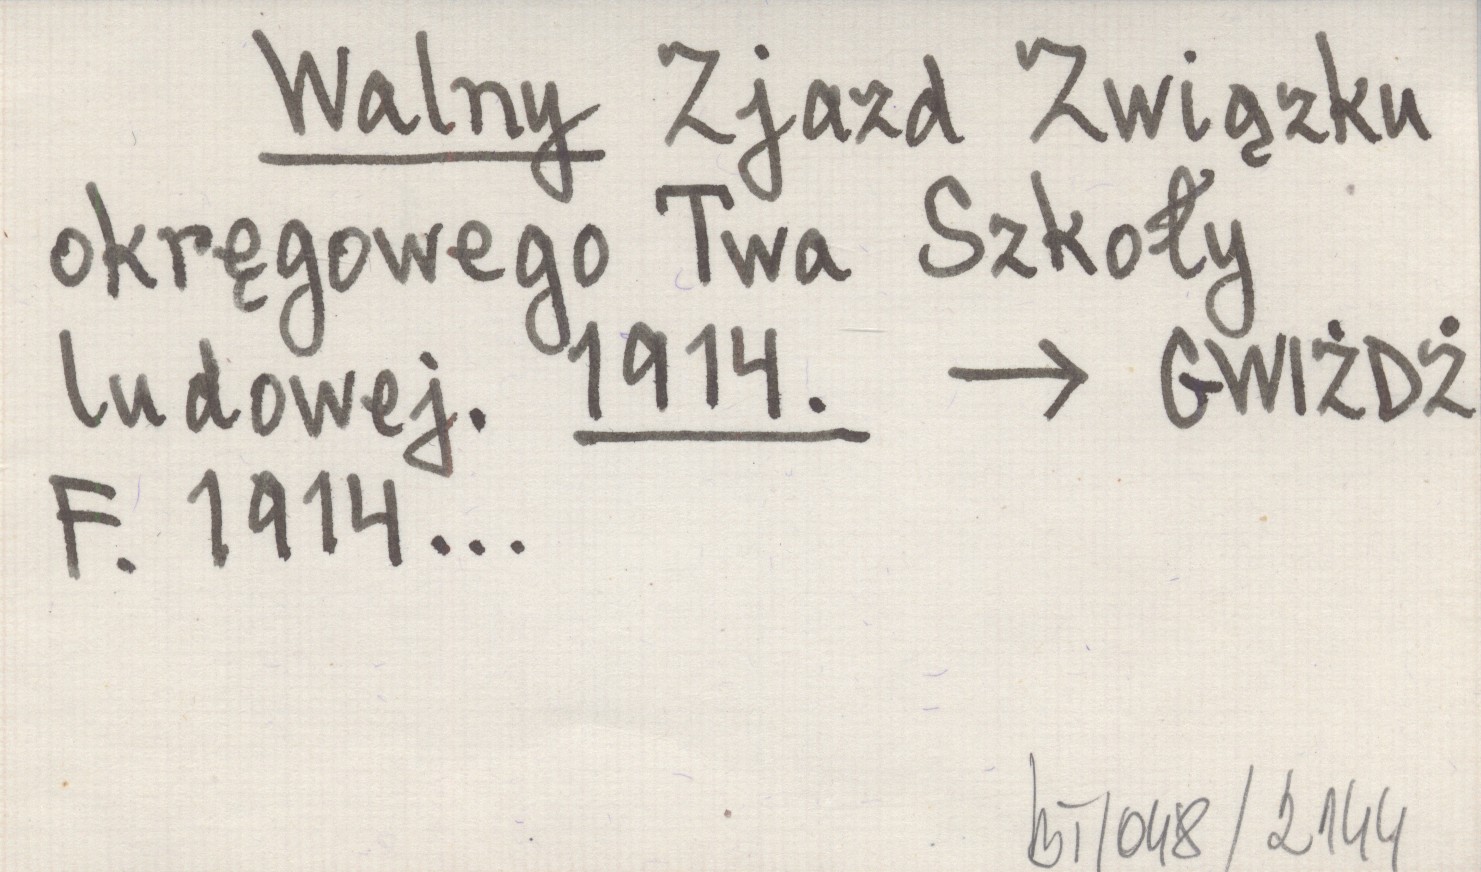 Walny Zjazd Związku
okręgowego Twa Szkoły
ludowej. 1914. → GWIŻDŻ
F. 1914...
BT/048/2144